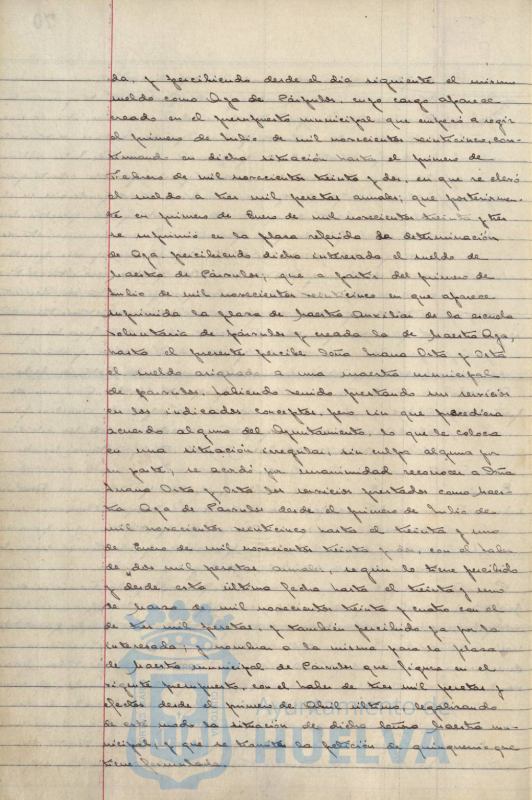 da, y percibiendo desde el dia siguiente el mismo
sueldo como Aya de Párvulos, cuyo cargo aparece
creado en el presupuesto municipal que empezó a regir
el primero de Julio de mil novecientos veinticinco, con-
tinuando en dicha situación hasta el primero de
Febrero de mil novecientos treinta y dos, en que se elevó
el sueldo a tres mil pesetas anuales; que posteriormen-
te en primero de Enero de mil novecientos treinta y tres
se suprimió en la plaza referida la determinación
de Aya percibiendo dicha interesada el sueldo de
Maestra de Párvulos; que a partir del primero de
Julio de mil novecientos veinticinco en que aparece
suprimida la plaza de Maestra Auxiliar de la escuela
voluntaria de párvulos y creada la de Maestra Aya,
hasta el presente percibe Doña Juana Orta y Orta
el sueldo asignado a una maestra municipal
de párvulos, habiendo venido prestando sus servicios
en los indicados conceptos, pero sin que precediera
acuerdo alguno del Ayuntamiento, lo que la coloca
en una situación irregular, sin culpa alguna por
su parte; se acordó por unanimidad reconocer a Doña
Juana Orta y Orta los servicios prestados como Maes-
tra Aya de Párvulos desde el primero de Julio de
mil novecientos veinticinco hasta el treinta y uno
de Enero de mil novecientos treinta y dos, con el haber
de dos mil pesetas anuales, según lo tiene percibido
y desde esta última fecha hasta el treinta y uno
de Marzo de mil novecientos treinta y cuatro con el
de tres mil pesetas, y también percibido ya por la
interesada; y nombrar a la misma para la plaza
de Maestra municipal de Párvulos que figura en el
vigente presupuesto, con el haber de tres mil pesetas y
efectos desde el primero de Abril último, legalizando
de este modo la situación de dicha señora Maestra mu-
nicipal; y que se tramite la petición de quinquenio que
tiene formulada.
Ayuntamiento
HUELVA